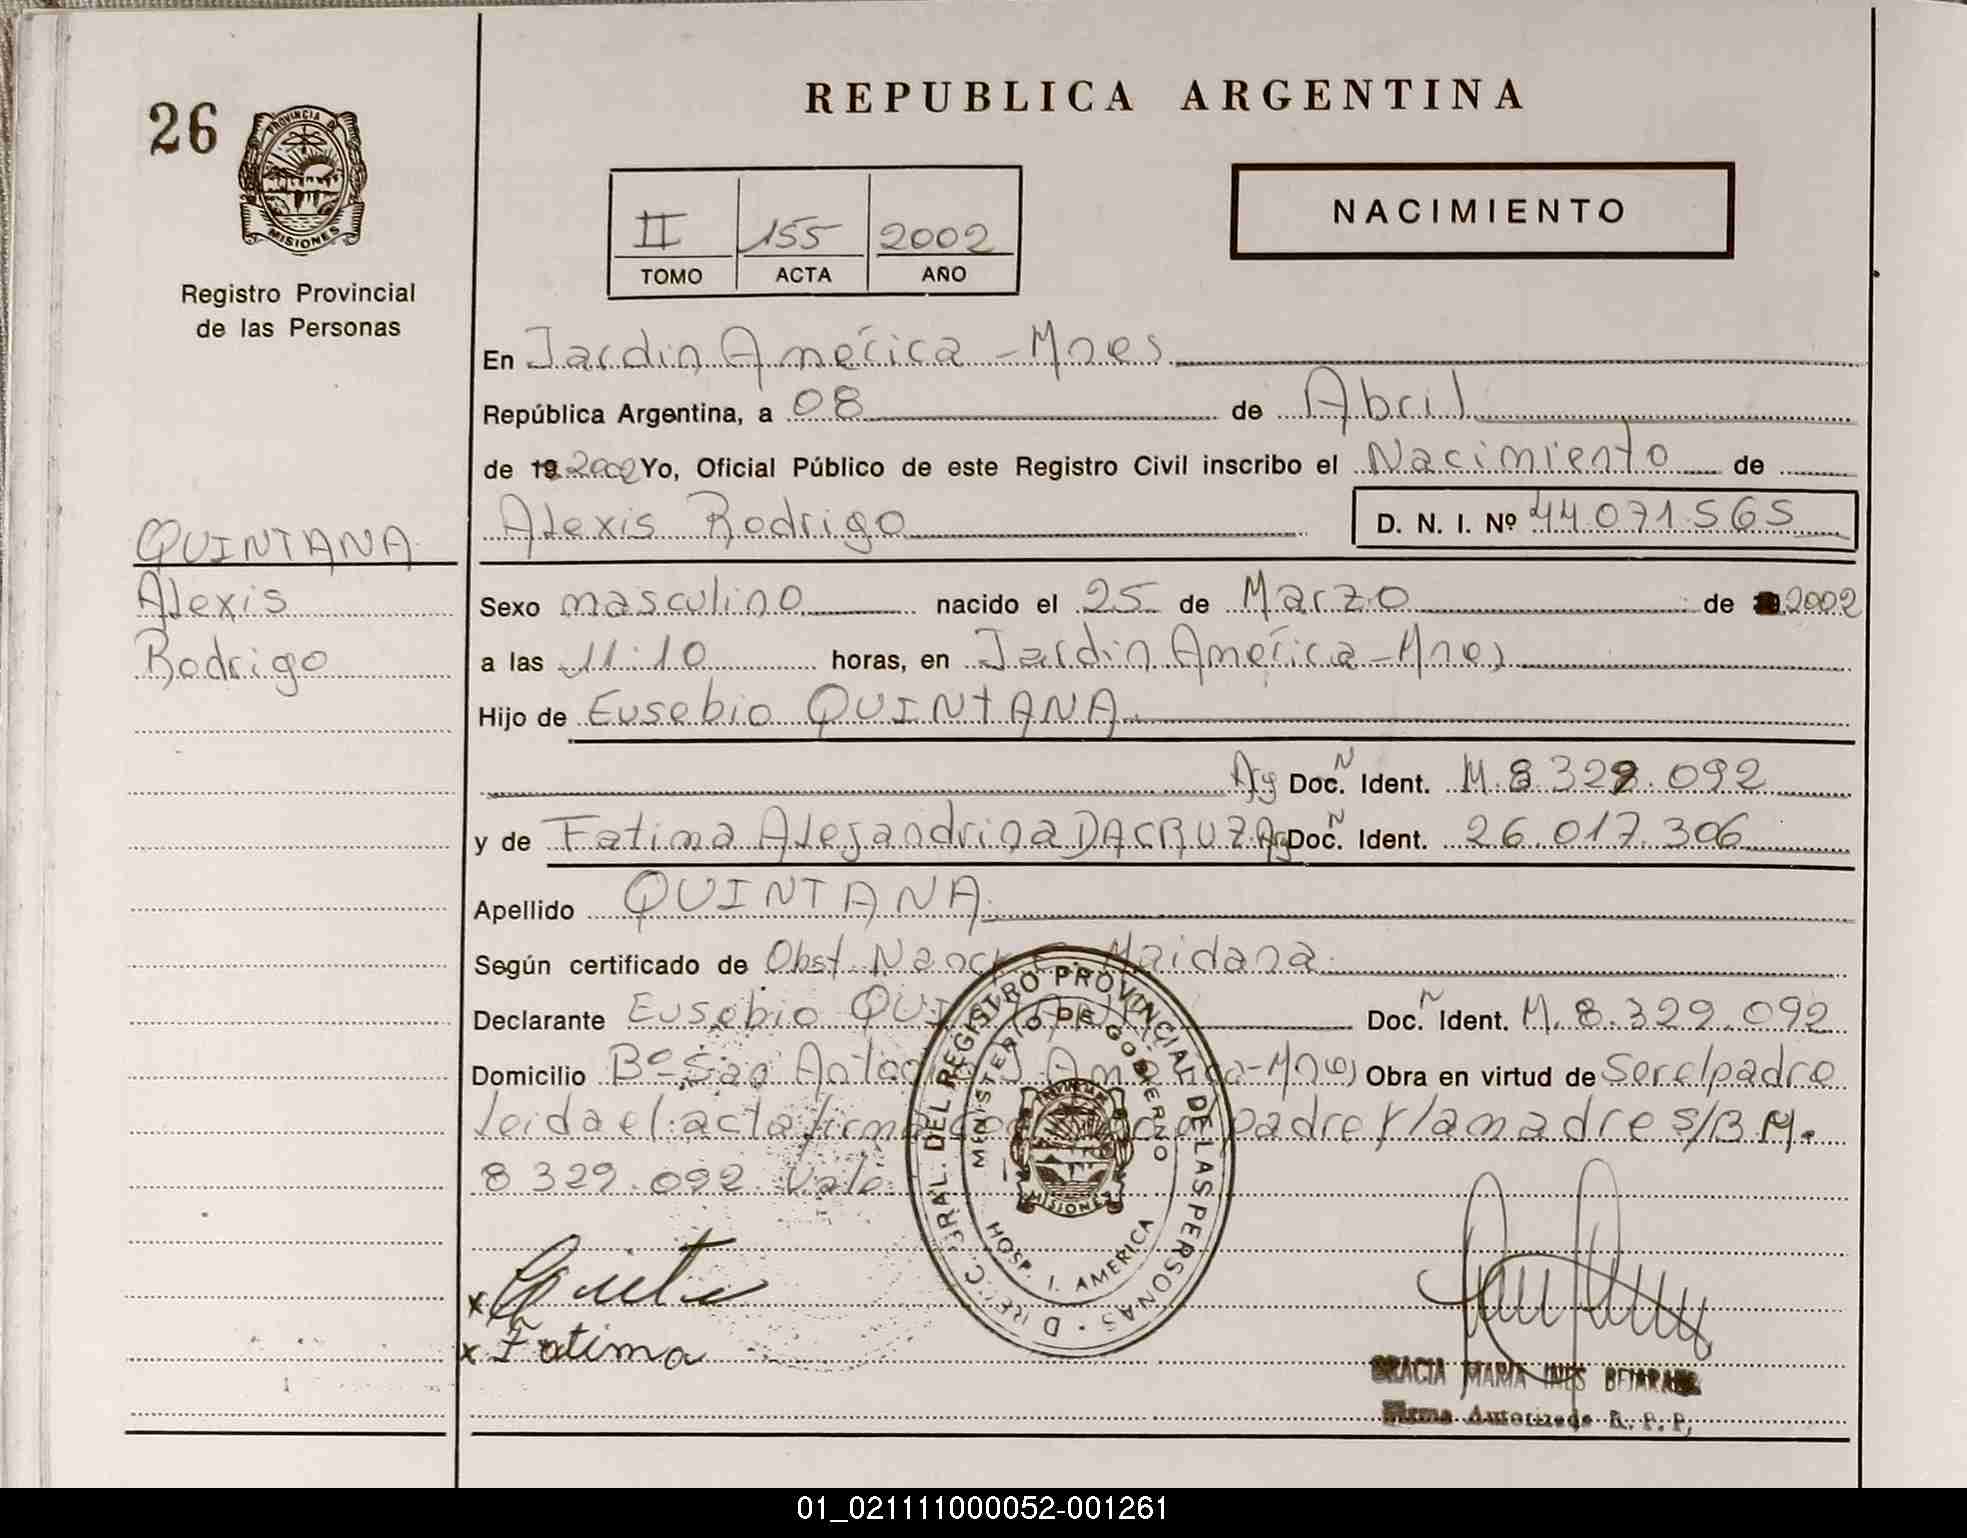 REPUBLICA ARGENTINA
26
PROVINCIA DE
MISIONES
Registro Provincial
de las Personas
II 155 2002
TOMO ACTA AÑO
NACIMIENTO
En Jardin América - Mnes
República Argentina, a 08 de Abril
de 19 2002 Yo, Oficial Público de este Registro Civil inscribo el Nacimiento de
Alexis Rodrigo D. N. I. Nº 44.071.565
QUINTANA
Alexis
Rodrigo
Sexo masculino nacido el 25 de Marzo de 2002
a las 11:10 horas, en Jardin América - Mnes
Hijo de Eusebio QUINTANA
Arg Doc. N Ident. M. 8.329.092
y de Fatima Alejandrina DACRUZ Arg Doc. N Ident. 26.017.306
Apellido QUINTANA
Según certificado de Obst. Nancy Maidana
Declarante Eusebio QUINTANA Doc. N Ident. M. 8.329.092
Domicilio Bº San Antonio J. América - Mnes Obra en virtud de Ser el padre
leida el acta firma el padre y la madre s/B M.
8 329.092 Vale
x
x Fatima
D REC. GRAL. DEL REGISTRO PROVINCIAL DE LAS PERSONAS
MINISTERIO DE GOBIERNO
MISIONES
HOSP. J. AMERICA
GRACIA MARIA INES BEJARANO
Firma Autorizada R. P. P.
01_021111000052-001261